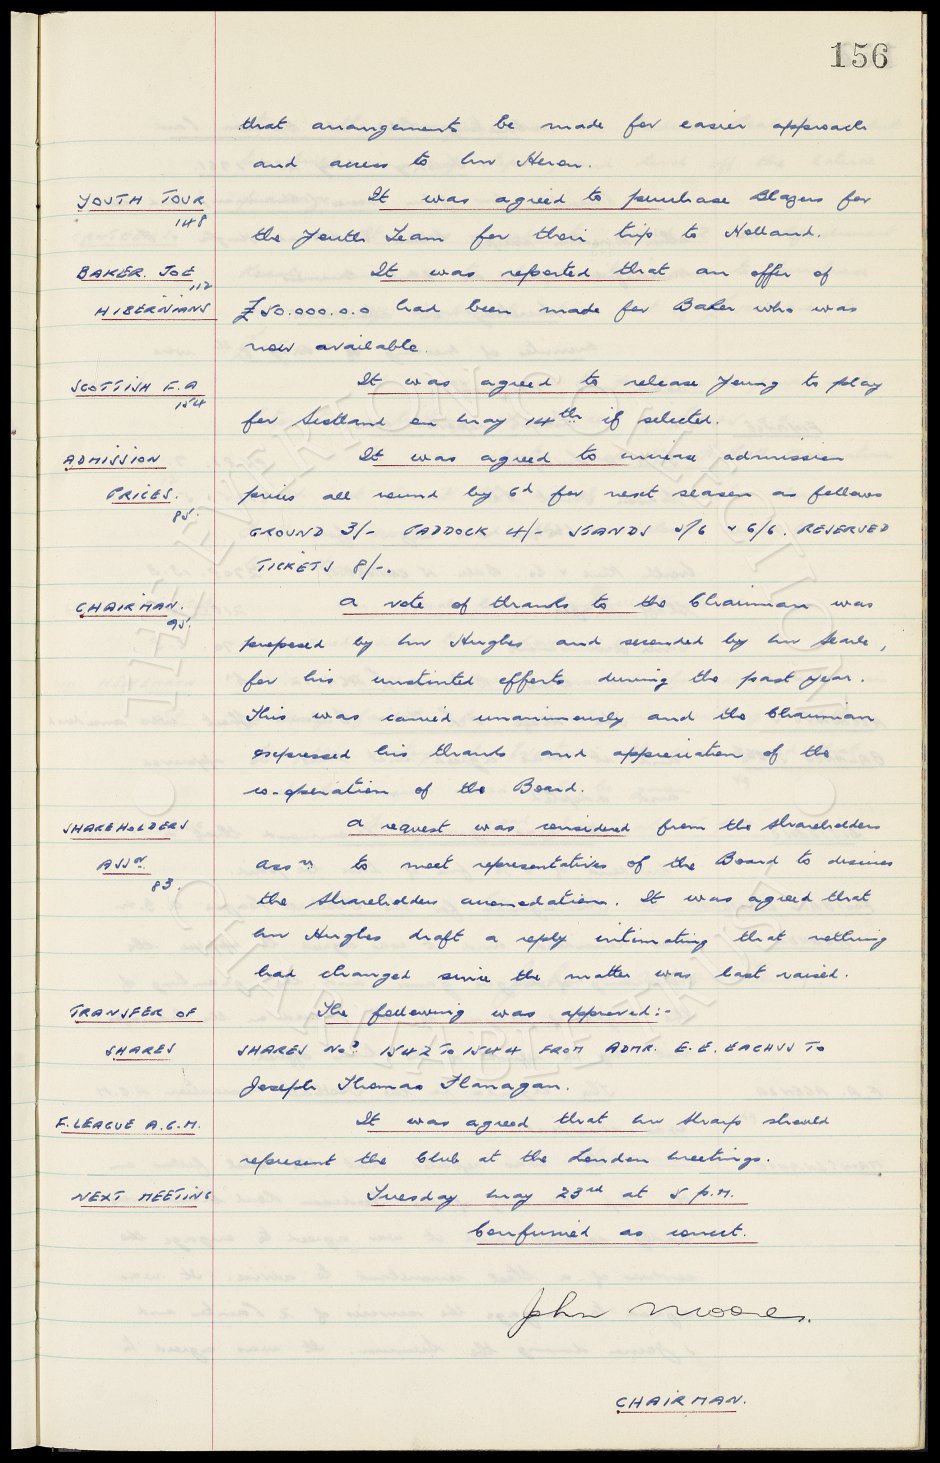 156
that arrangements be made for easier approach
and access to Mr Heron.
YOUTH TOUR It was agreed to purchase Blazers for
148
the Youth Team for their trip to Holland.
BAKER. JOE It was reported that an offer of
112
HIBERNIANS £50.000.0.0 had been made for Baker who was
now available.
SCOTTISH F.A It was agreed to release Young to play
154
for Scotland on May 14th if selected.
ADMISSION It was agreed to increase admission
PRICES. prices all round by 6d for next season as follows
85.
GROUND 3/- PADDOCK 4/- STANDS 5/6 & 6/6. RESERVED
TICKETS 8/-.
CHAIRMAN. A vote of thanks to the Chairman was
95.
proposed by Mr Hughes and seconded by Mr Searle,
for his unstinted efforts during the past year.
This was carried unanimously and the Chairman
expressed his thanks and appreciation of the
co-operation of the Board.
SHAREHOLDERS A request was considered from the Shareholders
ASSN. Assn to meet representatives of the Board to discuss
83.
the Shareholders accomodation. It was agreed that
Mr Hughes draft a reply intimating that nothing
had changed since the matter was last raised.
TRANSFER OF The following was approved:-
SHARES SHARES Nos 1542 TO 1544 FROM ADMR. E.E. EACHUS TO
Joseph Thomas Flanagan.
F. LEAGUE A.G.M. It was agreed that Mr Sharp should
represent the Club at the London meetings.
NEXT MEETING Tuesday May 23rd at 5 P.M.
Confirmed as correct.
John Moores.
CHAIRMAN.